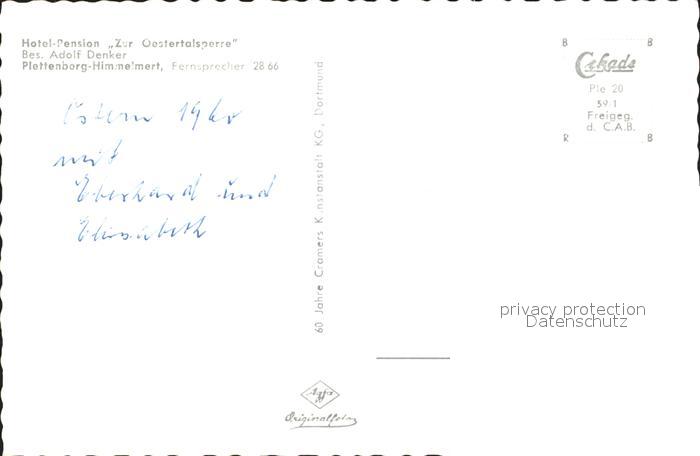 Hotel-Pension „Zur Oestertalsperre"
Bes. Adolf Denker
Plettenberg-Himmelmert, Fernsprecher 28 66
Ostern 1960
mit
Eberhard und
Elisabeth
60 Jahre Cramers Kunstanstalt KG., Dortmund
B B
Cekade
Ple 20
59 1
Freigeg.
d. C.A.B.
R B
privacy protection
Datenschutz
Agfa
Originalfoto